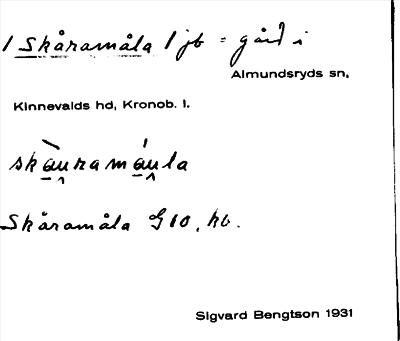 / Skåramåla / jb = gård i
Almundsryds sn,
Kinnevalds hd, Kronob. l.
skàuramáula
Skåramåla G10, kb.
Sigvard Bengtson 1931